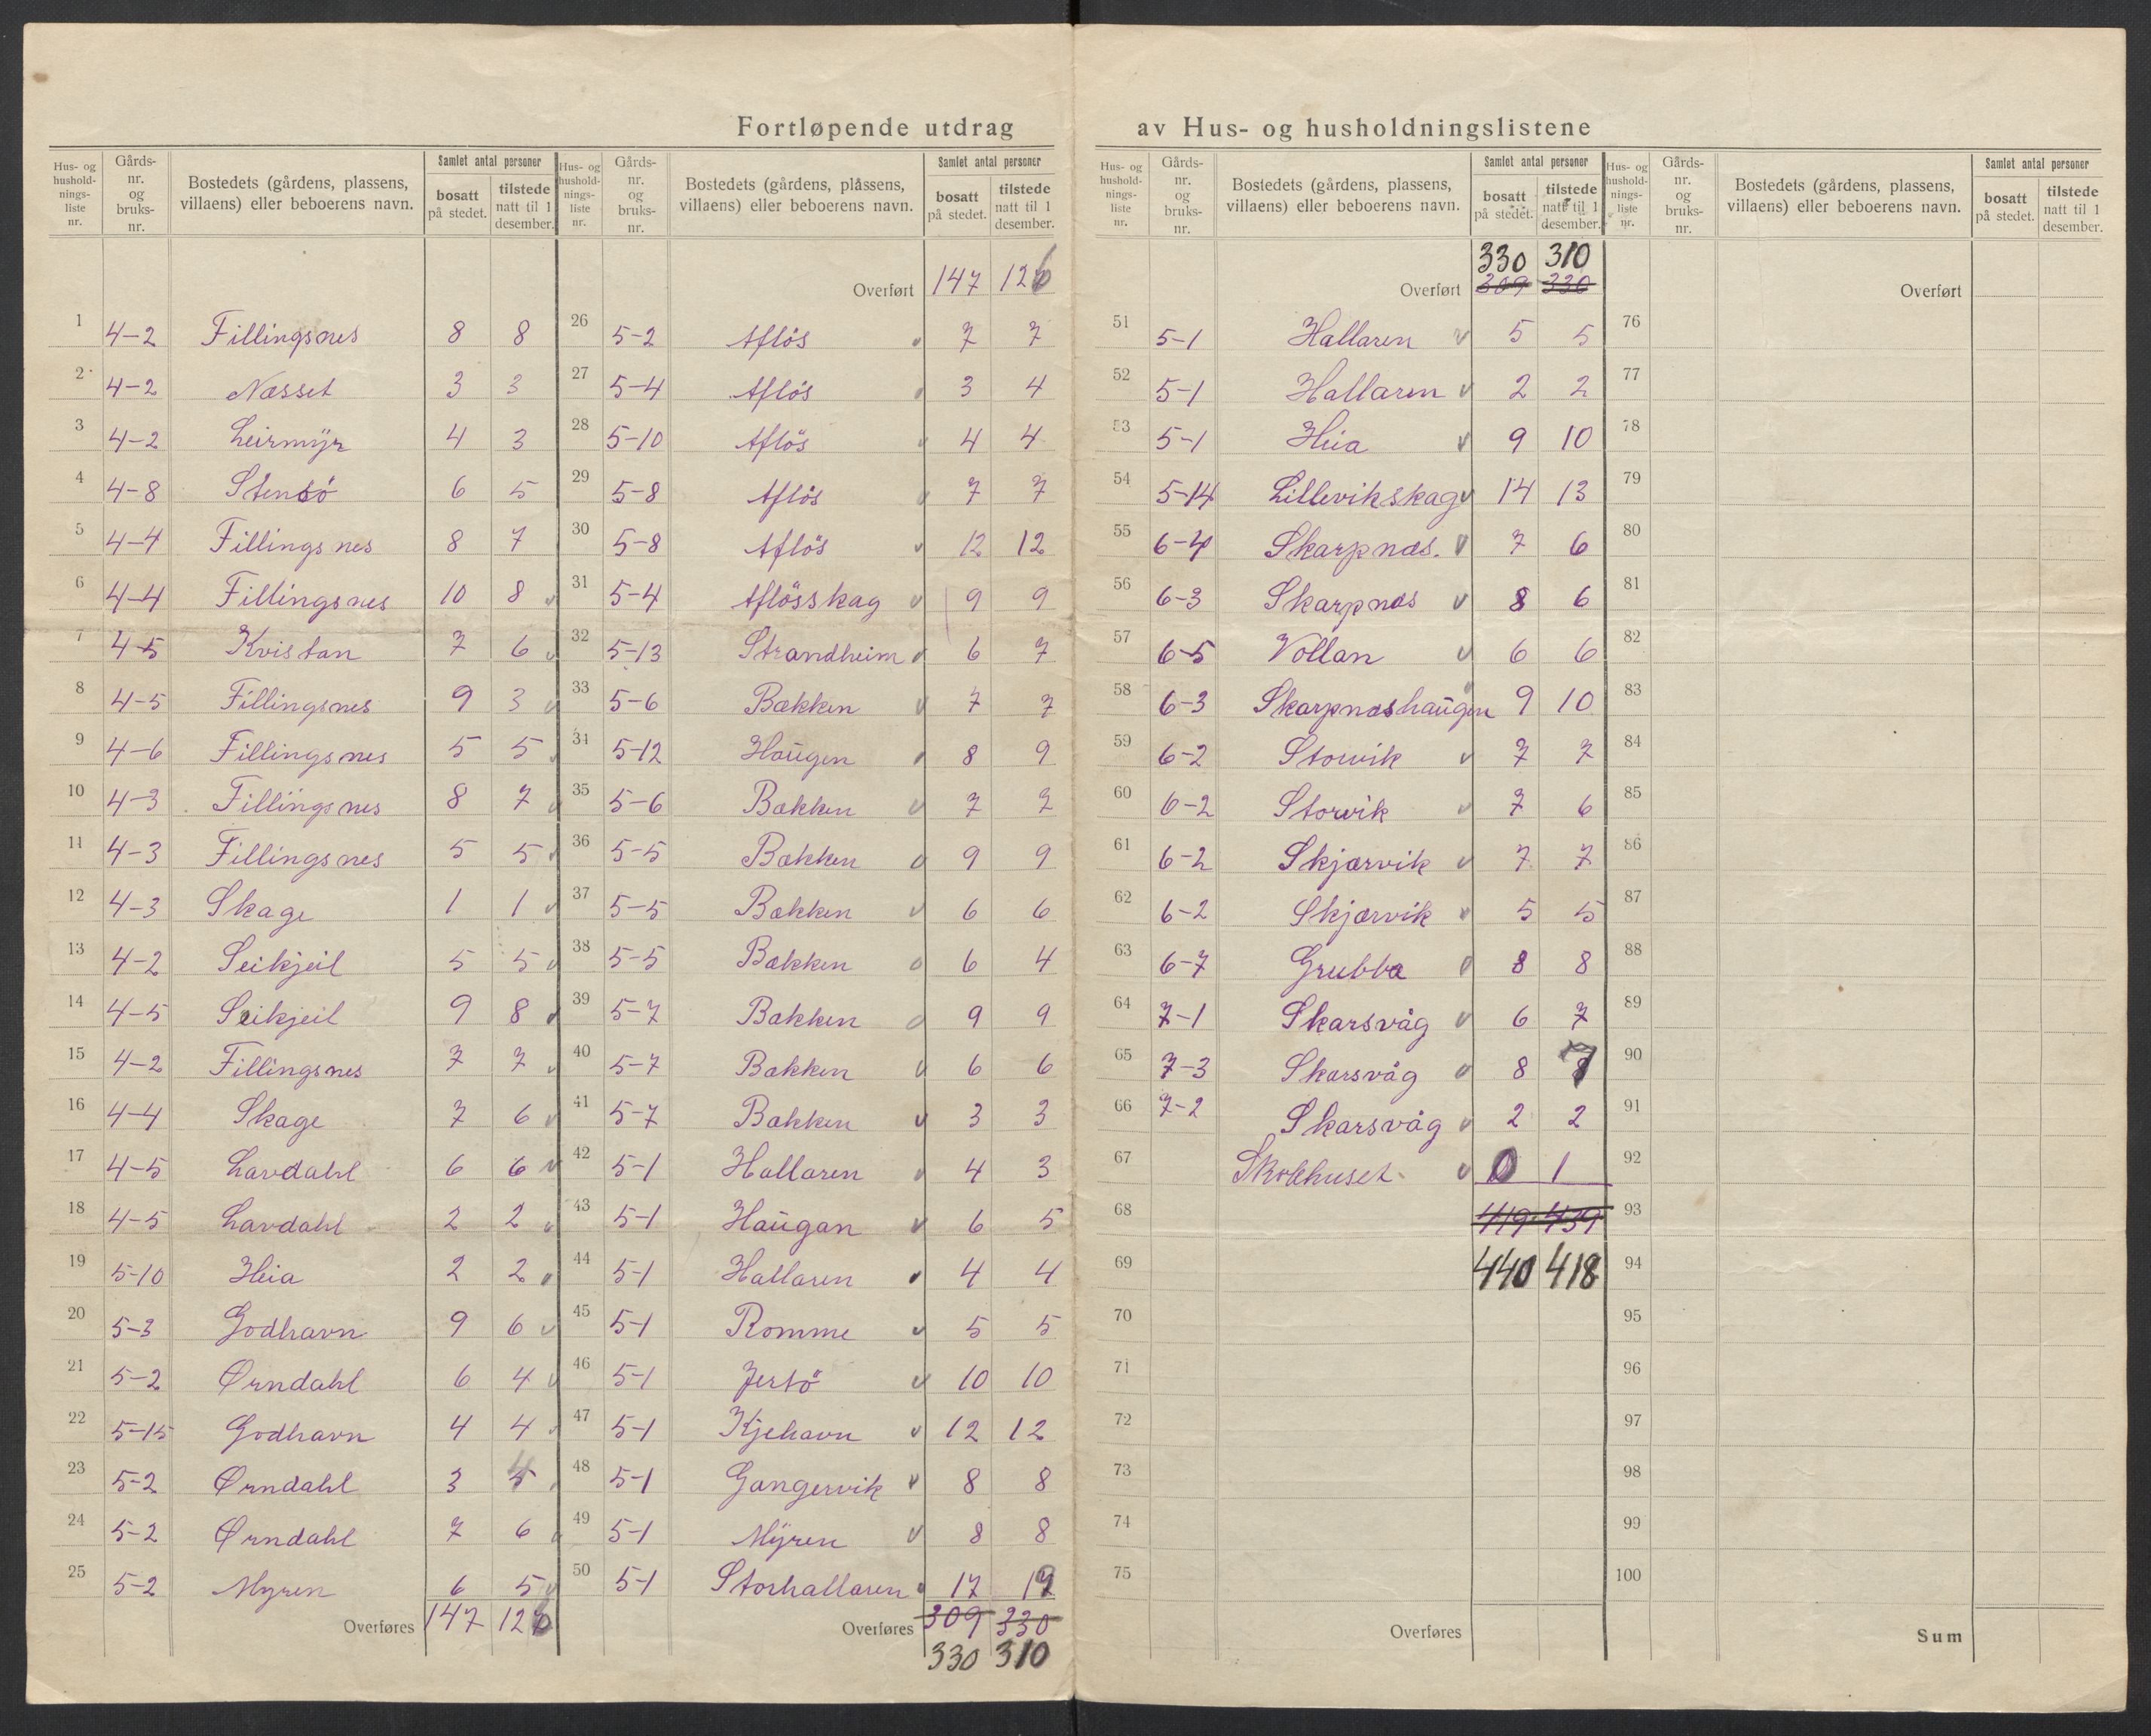 Fortløpende utdrag av Hus- og husholdningslistene
Hus- og hushold- nings- liste nr.
Gårds- nr. og bruks- nr.
Bostedets (gårdens, plassens, villaens) eller beboerens navn.
Samlet antal personer
bosatt på stedet.
tilstede natt til 1 desember.
1 4-2 Fillingsnes 8 8
2 4-2 Næsset 3 3
3 4-2 Leirmÿr 4 3
4 4-8 Stensö 6 5
5 4-4 Fillingsnes 8 7
6 4-4 Fillingsnes 10 8
7 4-5 Kvistan 7 6
8 4-5 Fillingsnes 9 3
9 4-6 Fillingsnes 5 5
10 4-3 Fillingsnes 8 7
11 4-3 Fillingsnes 5 5
12 4-3 Skage 1 1
13 4-2 Seikjeil 5 5
14 4-5 Seikjeil 9 8
15 4-2 Fillingsnes 7 7
16 4-4 Skage 7 6
17 4-5 Lavdahl 6 6
18 4-5 Lavdahl 2 2
19 5-10 Heia 2 2
20 5-3 Godhavn 9 6
21 5-2 Ørndahl 6 4
22 5-15 Godhavn 4 4
23 5-2 Ørndahl 3 4
24 5-2 Ørndahl 7 6
25 5-2 Myren 6 5
Overføres 147 126
Hus- og hushold- nings- liste nr.
Gårds- nr. og bruks- nr.
Bostedets (gårdens, plassens, villaens) eller beboerens navn.
Samlet antal personer
bosatt på stedet.
tilstede natt til 1 desember.
Overført 147 126
26 5-2 Aflös 7 7
27 5-4 Aflös 3 4
28 5-10 Aflös 4 4
29 5-8 Aflös 7 7
30 5-8 Aflös 12 12
31 5-4 Aflösskag 9 9
32 5-13 Strandheim 6 7
33 5-6 Bækken 7 7
34 5-12 Haŭgen 8 9
35 5-6 Bækken 7 7
36 5-5 Bækken 9 9
37 5-5 Bækken 6 6
38 5-5 Bækken 6 4
39 5-7 Bakken 9 9
40 5-7 Bakken 6 6
41 5-7 Bakken 3 3
42 5-1 Hallaren 4 3
43 5-1 Haŭgan 6 5
44 5-1 Hallaren 4 4
45 5-1 Romme 5 5
46 5-1 Jersö 10 10
47 5-1 Kjehavn 12 12
48 5-1 Gangervik 8 8
49 5-1 Mÿren 8 8
50 5-1 Storhallaren 17
Overføres 309 330
330 310
Hus- og hushold- nings- liste nr.
Gårds- nr. og bruks- nr.
Bostedets (gårdens, plassens, villaens) eller beboerens navn.
Samlet antal personer
bosatt på stedet.
tilstede natt til 1 desember.
330 310
Overført 309 330
51 5-1 Hallaren 5 5
52 5-1 Hallaren 2 2
53 5-1 Heia 9 10
54 5-14 Lillevikskag 14 13
55 6-4 Skarpnæs. 7 6
56 6-3 Skarpnæs 8 6
57 6-5 Vollan 6 6
58 6-3 Skarpnæshaŭgen 9 10
59 6-2 Storvik 7 7
60 6-2 Storvik 7 6
61 6-2 Skjærvik 7 7
62 6-2 Skjærvik 5 5
63 6-7 Grubba 8 8
64 7-1 Skarsvåg 6 7
65 7-3 Skarsvåg 8 7
66 7-2 Skarsvåg 2 2
67 Skolehuset 0 1
68 419 439
69 440 418
70
71
72
73
74
75
Overføres
Hus- og hushold- nings- liste nr.
Gårds- nr. og bruks- nr.
Bostedets (gårdens, plassens, villaens) eller beboerens navn.
Samlet antal personer
bosatt på stedet.
tilstede natt til 1 desember.
Overført
76
77
78
79
80
81
82
83
84
85
86
87
88
89
90
91
92
93
94
95
96
97
98
99
100
Sum